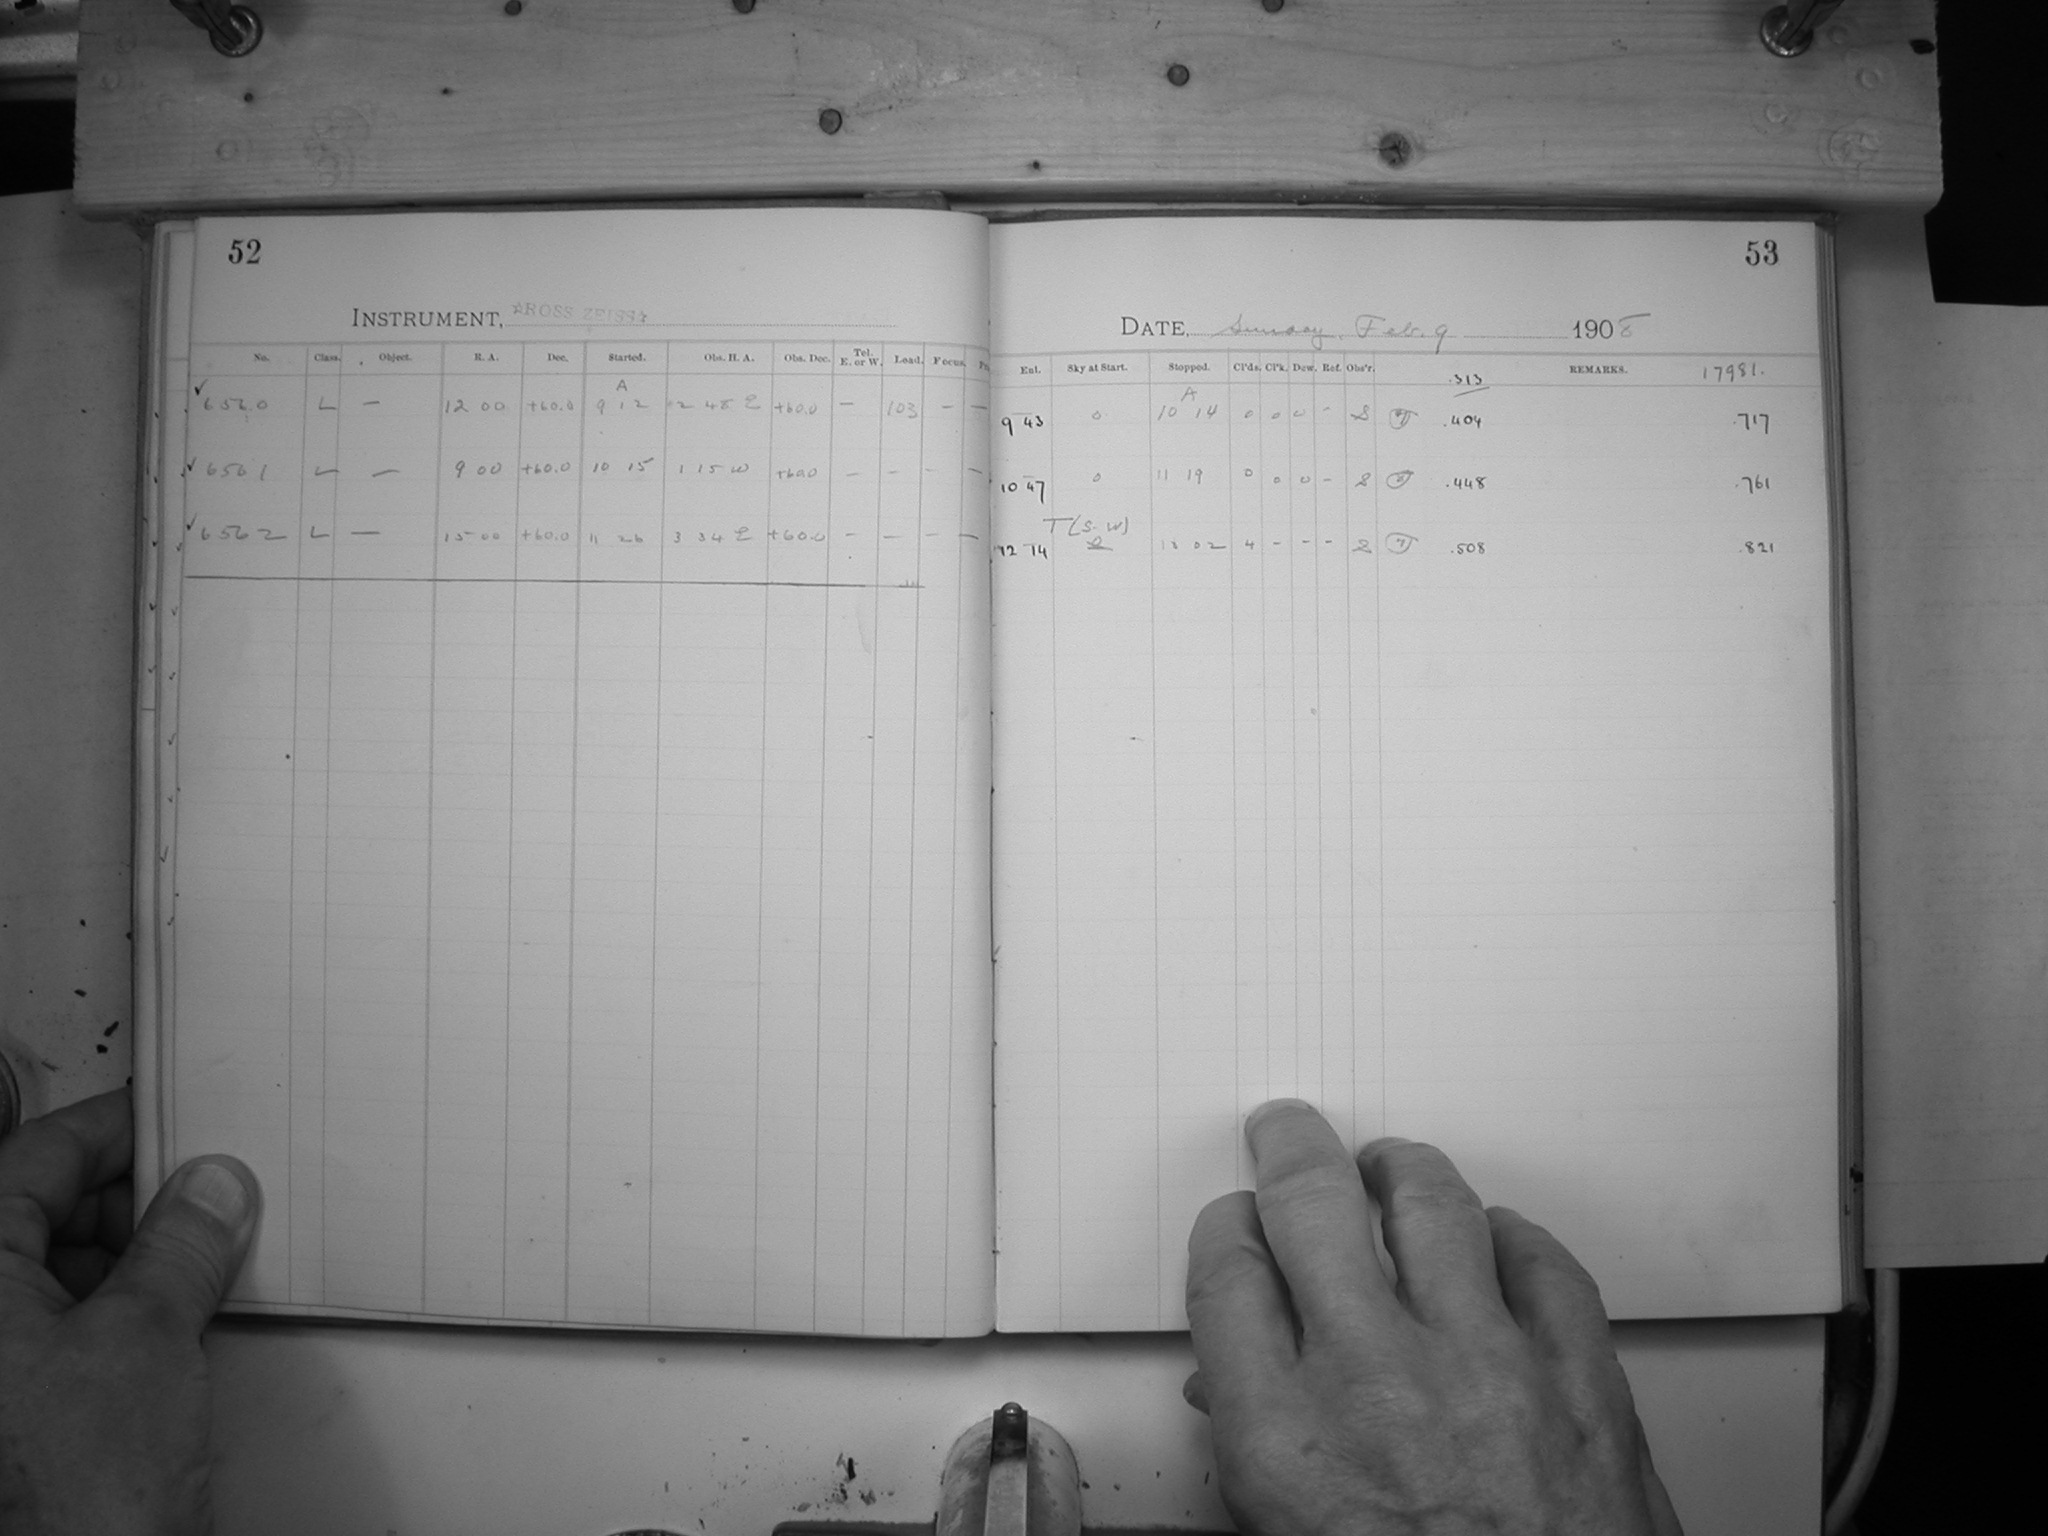 52
INSTRUMENT, ☆ROSS ZEISS☆
No. Class. Object. R. A. Dec. Started. Obs. H. A. Obs. Dec. Tel. E. or W. Load. Focus.
A
✓ 6560 L — 12 00 +60.0 9 12 2 48 E +60.0 — 103 — —
✓ 6561 L — 9 00 +60.0 10 15 1 15 W +60.0 — — — —
✓ 6562 L — 15 00 +60.0 11 26 3 34 E +60.0 — — — —
53
DATE, Sunday, Feb. 9 1908
Ent. Sky at Start. Stopped. Cl'ds. Cl'k. Dew. Ref. Obs'r. .313 REMARKS. 17981.
A
9 43 0 10 14 0 0 0 - S .404 .717
10 47 0 11 19 0 0 0 - S .448 .761
T (S. W)
12 14 02 4 - - - S .508 .821